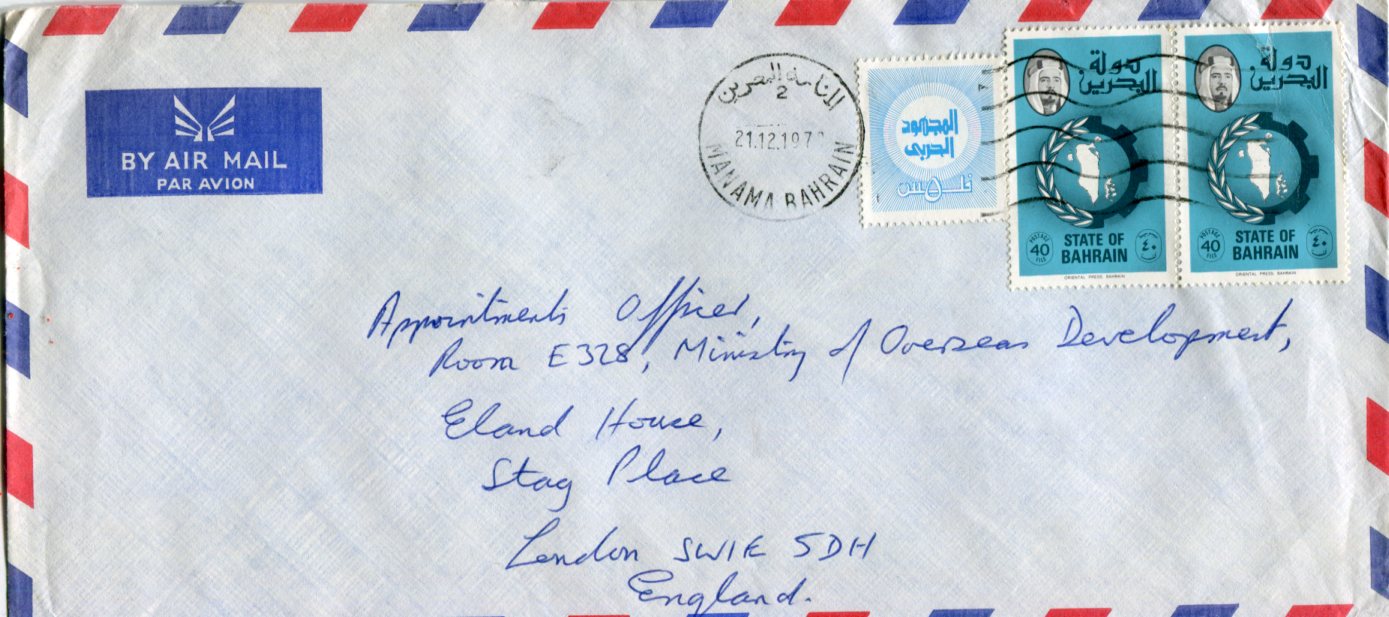 BY AIR MAIL
PAR AVION
المنامة البحرين
2
21.12.197
MANAMA BAHRAIN
المجهود
الحربي
٥ فلس
دولة
البحرين
POSTAGE
40
FILS
STATE OF
BAHRAIN
٤٠
ORIENTAL PRESS BAHRAIN
دولة
البحرين
POSTAGE
40
FILS
STATE OF
BAHRAIN
٤٠
ORIENTAL PRESS BAHRAIN
Appointments Officer,
Room E328, Ministry of Overseas Development,
Eland House,
Stag Place
London SW1E 5DH
England.